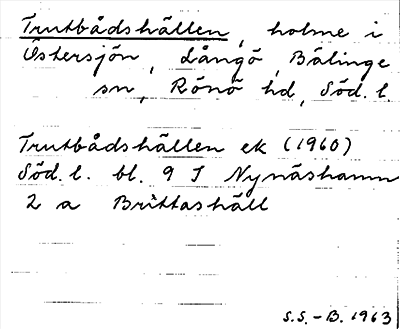 Trutbådshällen, holme i
Östersjön, Långö, Bälinge
sn, Rönö hd, Söd. l.
Trutbådshällen ek (1960)
Söd. l. bl. 9 I Nynäshamn
2 a Brittashäll
S.S.-B. 1963